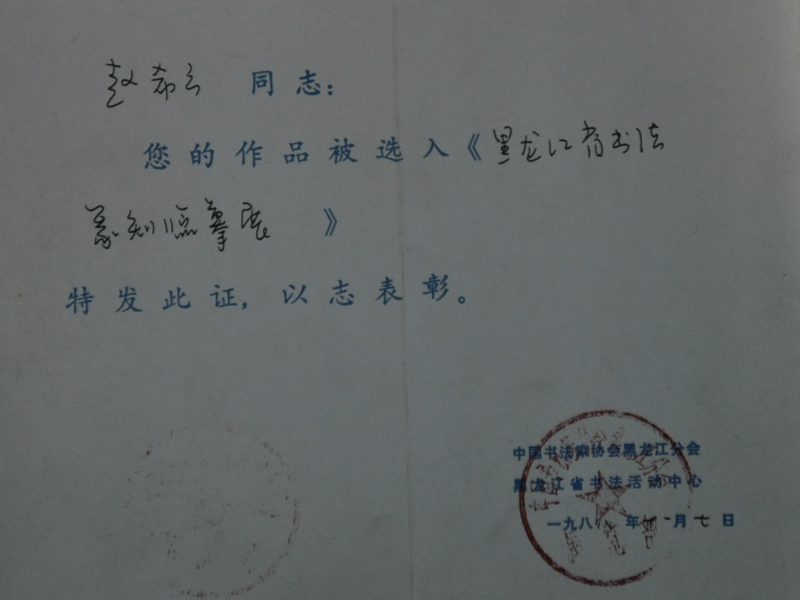 赵希云 同志：
您的作品被选入《黑龙江省书法
篆刻临摹展 》
特发此证，以志表彰。
中国书法家协会黑龙江分会
黑龙江省书法活动中心
一九八 年 月七日